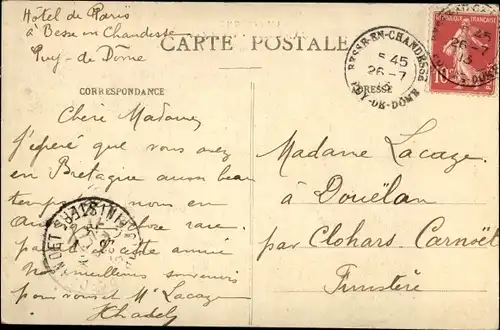 Hôtel de Paris
à Besse en Chandesse
Puy-de Dôme
CARTE POSTALE
CORRESPONDANCE
ADRESSE
BESSE-EN-CHANDESSE
5 45
26-7
13
PUY-DE-DOME
45
26-7
13
10
Chère Madame,
J'espère que vous avez
en Bretagne aussi beau
temps que nous en
chose rare
par cette année
meilleurs souvenirs
pour vous et Mr Lacaze
FINISTERE
Madame Lacaze
à Douëlan
par Clohars Carnoët
Finistère